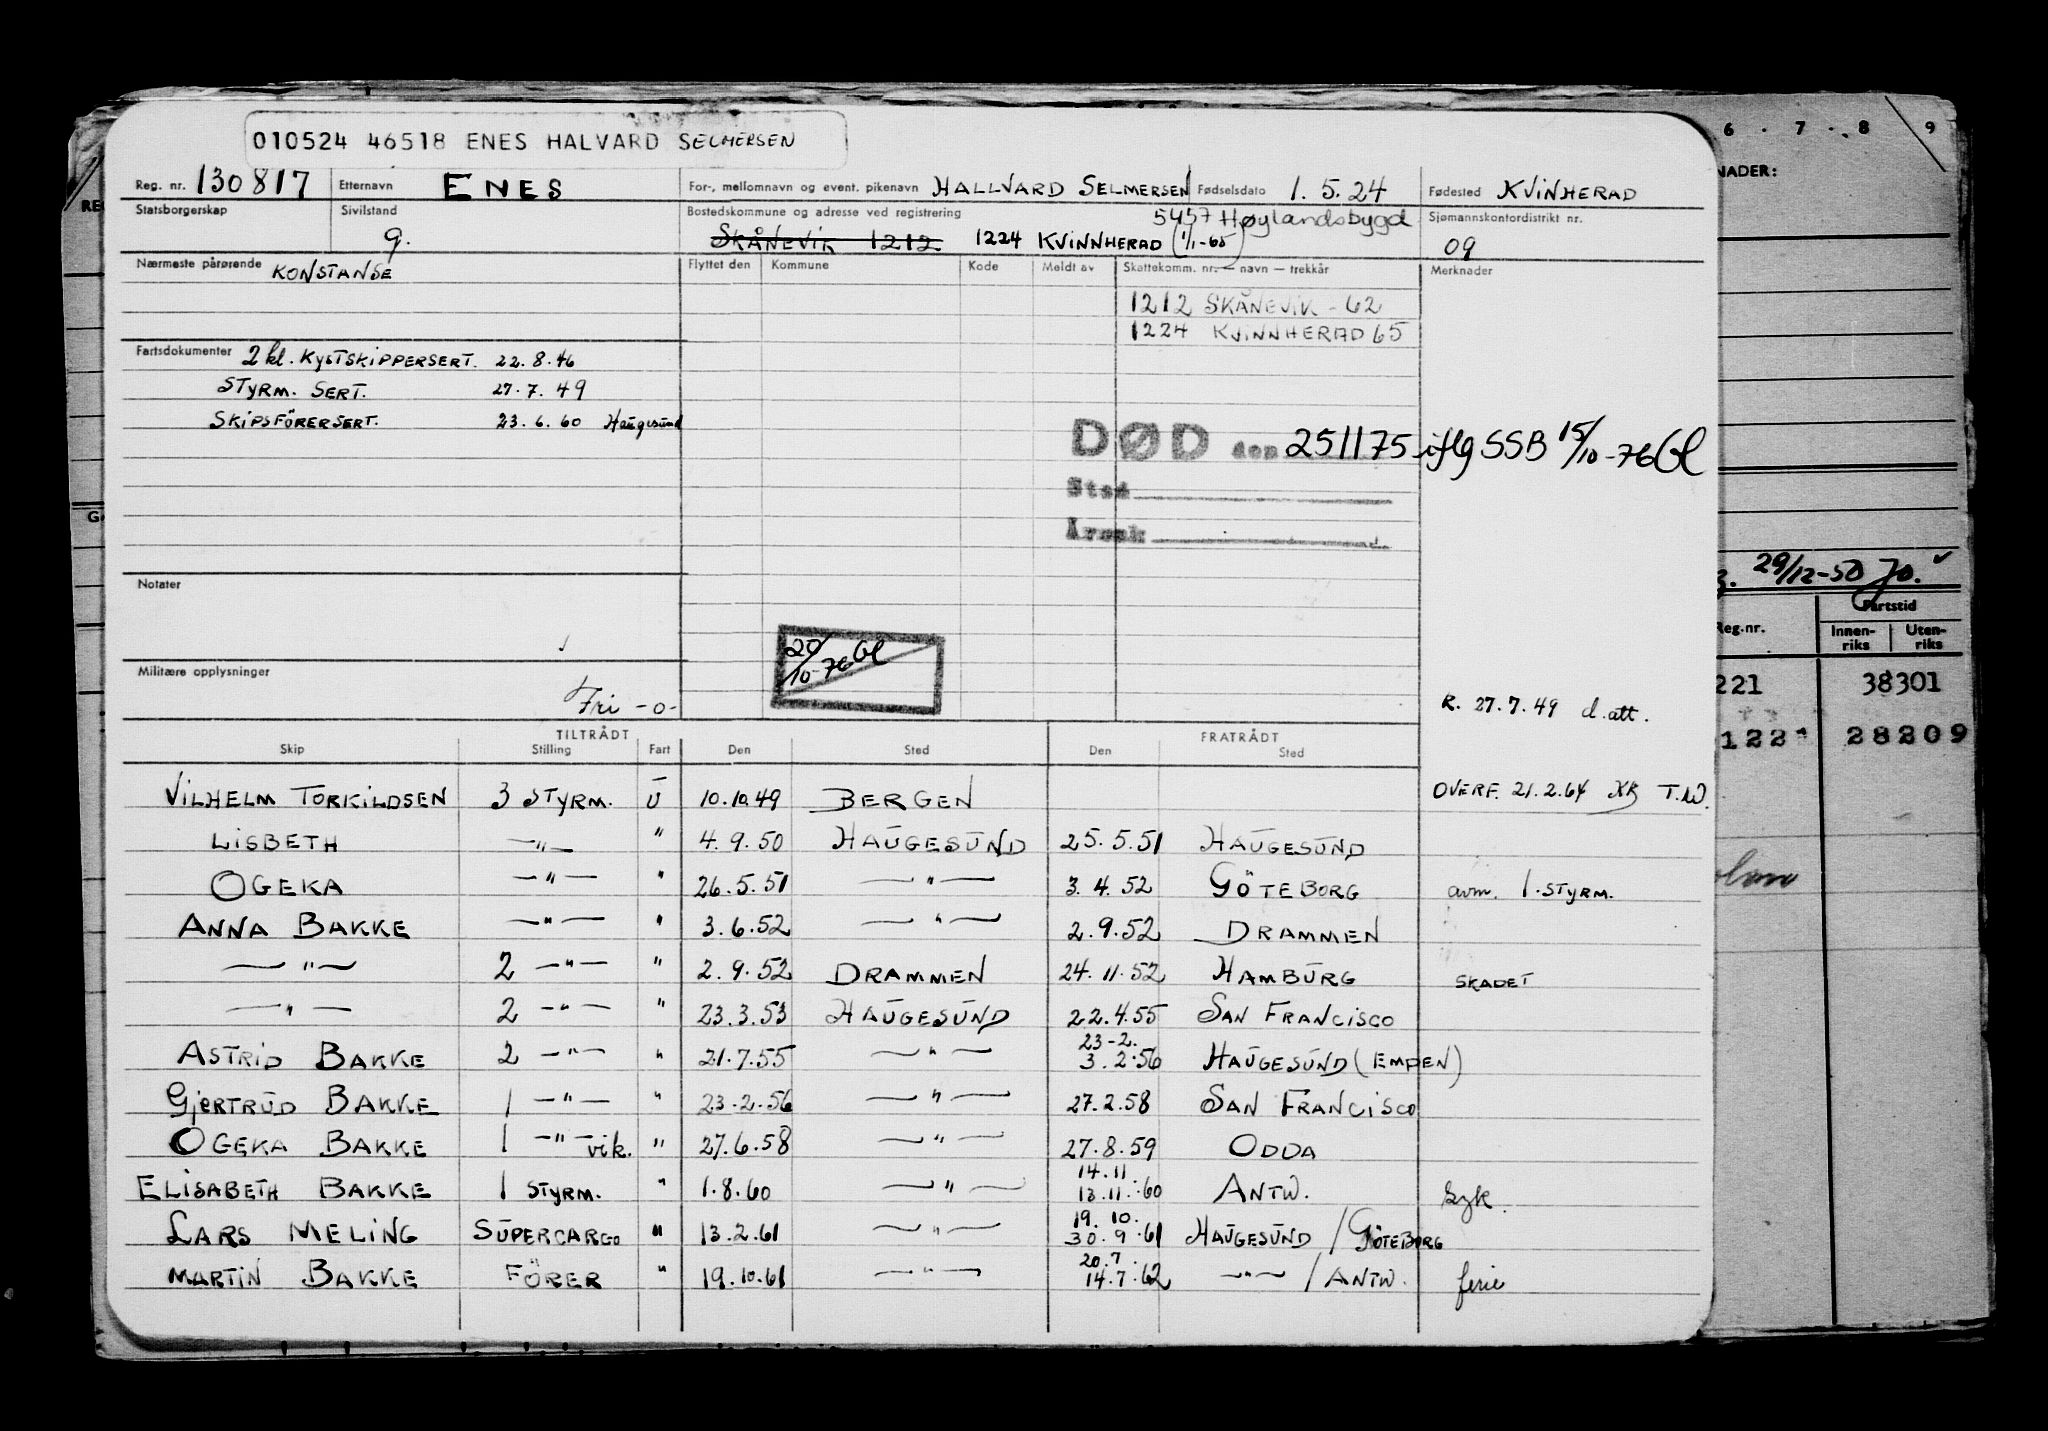 010524 46518 ENES HALVARD SELMERSEN
6 . 7 . 8 9
NADER:
Reg. nr. 130817 Etternavn ENES For-, mellomnavn og event. pikenavn HALLVARD SELMERSEN Fødselsdato 1.5.24 Fødested KVINHERAD
Statsborgerskap Sivilstand g. Bostedskommune og adresse ved registrering 5457 Høylandsbygd Sjømannskontordistrikt nr.
SKÅNEVIK 1212. 1224 KVINNHERAD (1/1-65) 09
Nærmeste pårørende KONSTANSE Flyttet den Kommune Kode Meldt av Skattekomm. nr. — navn — trekkår Merknader
1212 SKÅNEVIK - 62
1224 KVINNHERAD 65
Fartsdokumenter 2 kl. KYSTSKIPPERSERT. 22.8.46
STYRM. SERT. 27.7.49
SKIPSFÖRERSERT. 23.6.60 Haugesund
DØD den 251175 iflg SSB 15/10-76 Gl
Sted
Årsak
29/12-50 Jo.
Notater
Fartstid
Reg.nr. Innen-riks Uten-riks
20/10-76 Gl
Militære opplysninger Fri -0-
221 38301
R. 27.7.49 d.att.
122 28209
TILTRÅDT FRATRÅDT
Skip Stilling Fart Den Sted Den Sted
VILHELM TORKILDSEN 3 STYRM. U 10.10.49 BERGEN OVERF. 21.2.64 T.W.
LISBETH —"— " 4.9.50 HAUGESUND 25.5.51 HAUGESUND
OGEKA —"— " 26.5.51 —"— 3.4.52 GÖTEBORG avm. 1.STYRM.
ANNA BAKKE —"— " 3.6.52 —"— 2.9.52 DRAMMEN
—"— 2 —"— " 2.9.52 DRAMMEN 24.11.52 HAMBURG SKADET
—"— 2 —"— " 23.3.53 HAUGESUND 22.4.55 SAN FRANCISCO
23-2.
ASTRID BAKKE 2 —"— " 21.7.55 —"— 3.2.56 HAUGESUND (EMDEN)
GJERTRUD BAKKE 1 —"— " 23.2.56 —"— 27.2.58 SAN FRANCISCO
OGEKA BAKKE 1 —"— vik. " 27.6.58 —"— 27.8.59 ODDA
14.11
ELISABETH BAKKE 1 STYRM. " 1.8.60 —"— 13.11.60 ANTW. syk.
19.10.
LARS MELING SUPERCARGO " 13.2.61 —"— 30.9.61 HAUGESUND / GÖTEBORG
20.7.
MARTIN BAKKE FÖRER " 19.10.61 —"— 14.7.62 —"— / ANTW. ferie